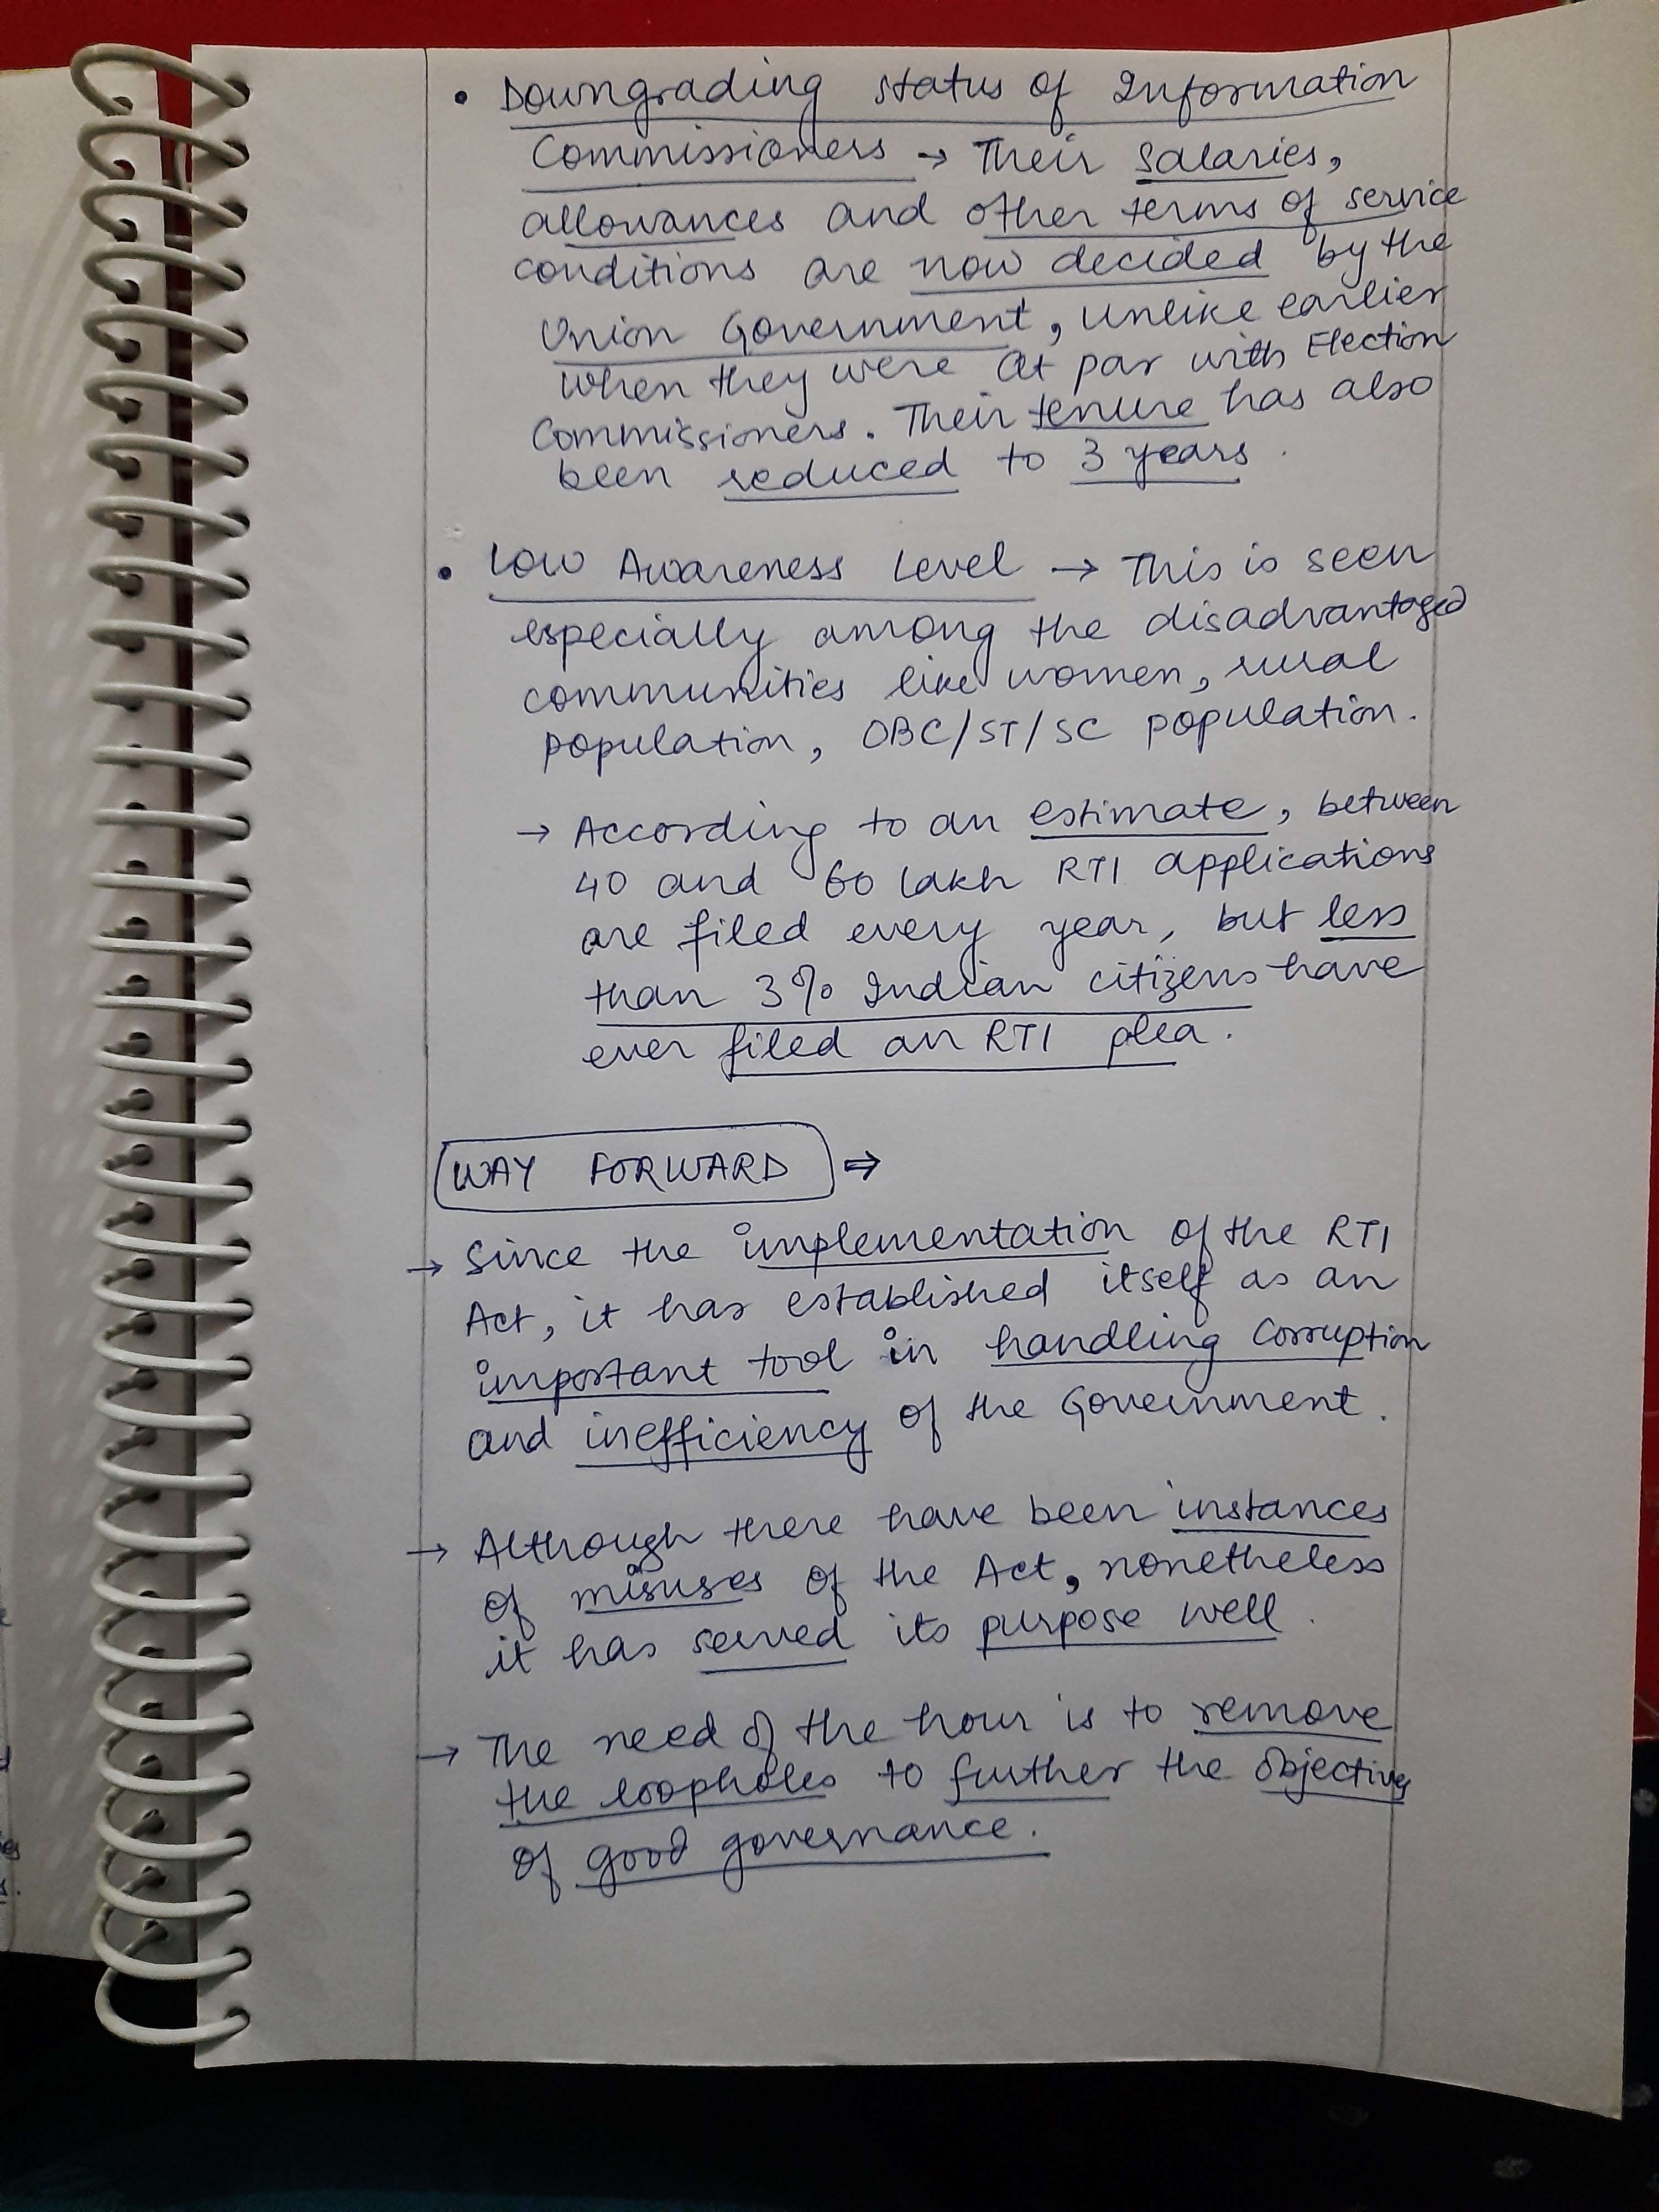 • Downgrading status of Information
Commissioners → Their salaries,
allowances and other terms of service
conditions are now decided by the
Union Government, unlike earlier
when they were at par with Election
Commissioners. Their tenure has also
been reduced to 3 years.
• Low Awareness Level → This is seen
especially among the disadvantaged
communities like women, rural
population, OBC/ST/SC population.
→ According to an estimate, between
40 and 60 lakh RTI applications
are filed every year, but less
than 3% Indian citizens have
ever filed an RTI plea.
WAY FORWARD ⇒
→ Since the implementation of the RTI
Act, it has established itself as an
important tool in handling corruption
and inefficiency of the Government.
→ Although there have been instances
of misuses of the Act, nonetheless
it has served its purpose well.
→ The need of the hour is to remove
the loopholes to further the objectives
of good governance.